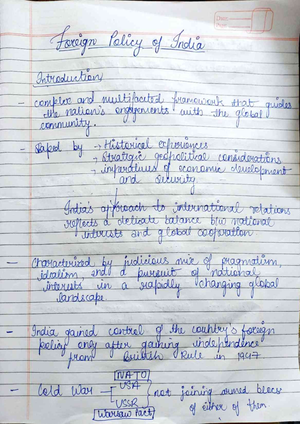 Foreign Policy of India
Introduction
- complex and multifaceted framework that guides
the nation's engagements with the global
community.
- Shaped by → Historical experiences
→ Strategic geopolitical considerations
→ imperatives of economic development
and security
India's approach to international relations
reflects a delicate balance b/w national
interests and global cooperation
- Characterized by judicious mix of pragmatism,
idealism, and a pursuit of national
interests in a rapidly changing global
landscape
- India gained control of the country's foreign
policy only after gaining independence
from British Rule in 1947
NATO
- Cold War USA
USSR
not joining armed blocs
of either of them
Warsaw Pact